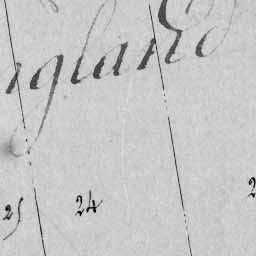 ngland
25 24 2